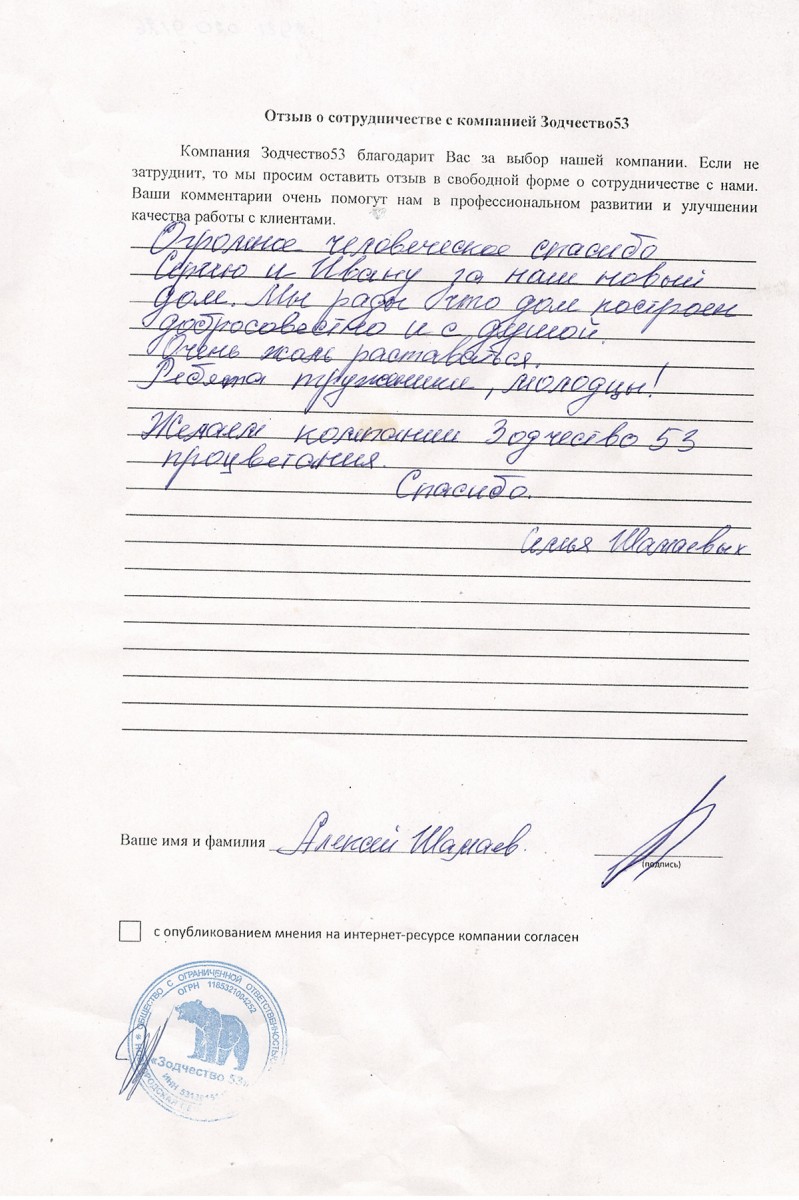 Отзыв о сотрудничестве с компанией Зодчество53
Компания Зодчество53 благодарит Вас за выбор нашей компании. Если не
затруднит, то мы просим оставить отзыв в свободной форме о сотрудничестве с нами.
Ваши комментарии очень помогут нам в профессиональном развитии и улучшении
качества работы с клиентами.
Огромное человеческое спасибо
Сергею и Ивану за наш новый
дом. Мы рады что дом построен
добросовестно и с душой.
Очень жаль раставаться.
Ребята труженики, молодцы!
Желаем компании Зодчество 53
процветания.
Спасибо.
Семья Шамаевых
Ваше имя и фамилия Алексей Шамаев.
(подпись)
с опубликованием мнения на интернет-ресурсе компании согласен
ОБЩЕСТВО С ОГРАНИЧЕННОЙ ОТВЕТСТВЕННОСТЬЮ
ОГРН 1165321054252
«Зодчество 53»
ИНН